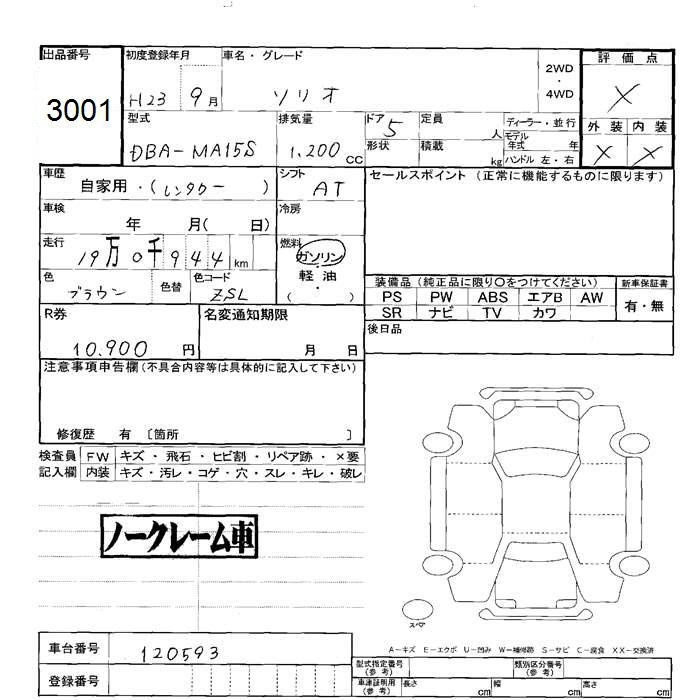 出品番号 初度登録年月 車名・グレード 2WD ・ 4WD 評価点
3001 H23 9月 ソリオ ×
型式 排気量 ドア 定員 ディーラー・並行 外装 内装
DBA-MA15S 1,200 cc 5 人 モデル年式 年 × ×
形状 積載 kg ハンドル 左・右
車歴 シフト セールスポイント (正常に機能するものに限ります)
自家用・(レンタカー) AT
車検 冷房
年 月( 日)
走行 燃料
19万0千944km ガソリン・軽油・( )
色 色替 色コード 装備品 (純正品に限り○をつけてください) 新車保証書
ブラウン ZSL PS PW ABS エアB AW 有・無
SR ナビ TV カワ
R券 名変通知期限 後日品
10,900 円 月 日
注意事項申告欄 (不具合内容等は具体的に記入して下さい)
修復歴 有 〔箇所 〕
検査員 FW キズ・飛石・ヒビ割・リペア跡・×要
記入欄 内装 キズ・汚レ・コゲ・穴・スレ・キレ・破レ
ノークレーム車
スペア
A-キズ E-エクボ U-凹み W-補修跡 S-サビ C-腐食 XX-交換済
車台番号 120593
型式指定番号 (参考) 類別区分番号 (参考)
登録番号 車庫証明用 (参考) 長さ cm 幅 cm 高さ cm